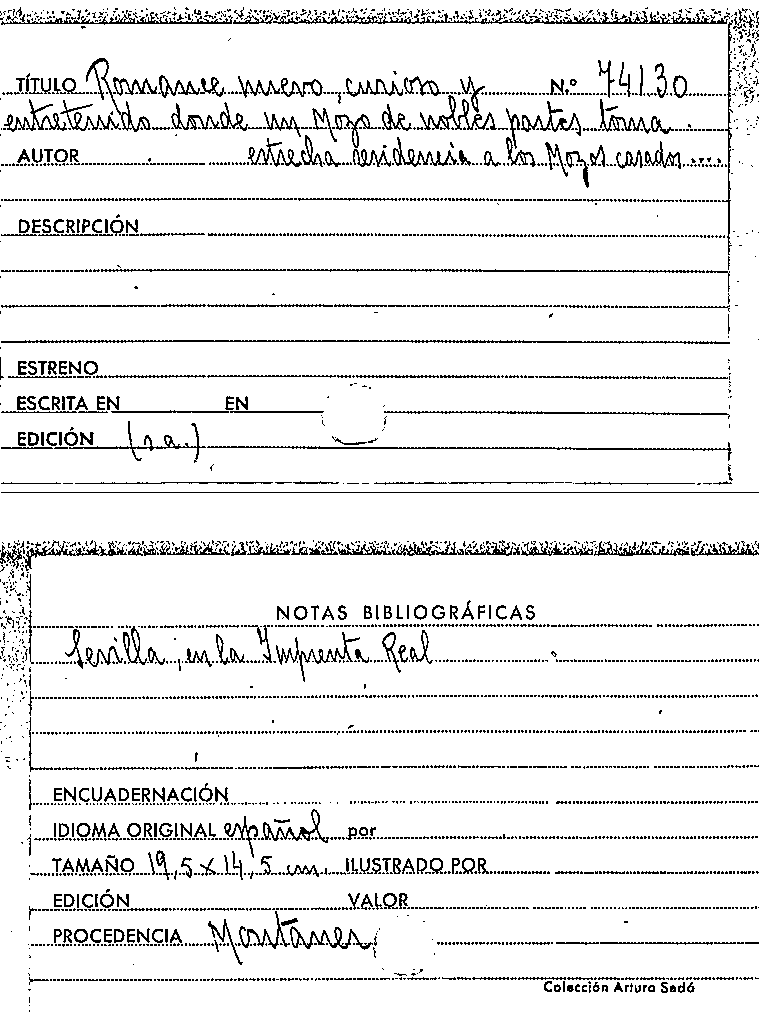 TÍTULO Romance nuevo, curioso y N.º 74130
entretenido donde un Mozo de nobles partes toma
AUTOR estrecha residencia a los Mozos casados....
DESCRIPCIÓN
ESTRENO
ESCRITA EN EN
EDICIÓN (s.a.)
NOTAS BIBLIOGRÁFICAS
Sevilla, en la Imprenta Real
ENCUADERNACIÓN
IDIOMA ORIGINAL español por
TAMAÑO 19,5 x 14,5 cm. ILUSTRADO POR
EDICIÓN VALOR
PROCEDENCIA Montaner
Colección Arturo Sedó